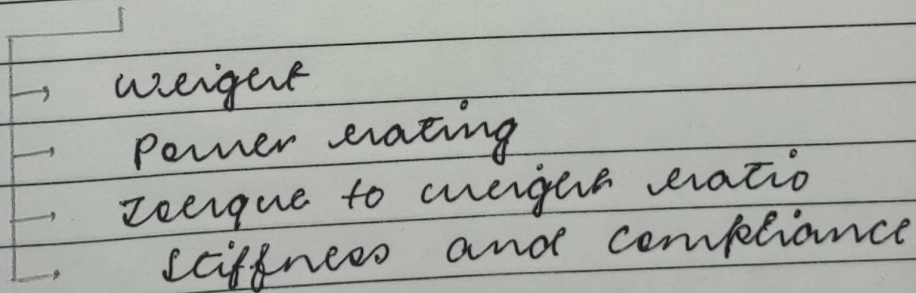 weight
Power rating
Torque to weight ratio
stiffness and compliance